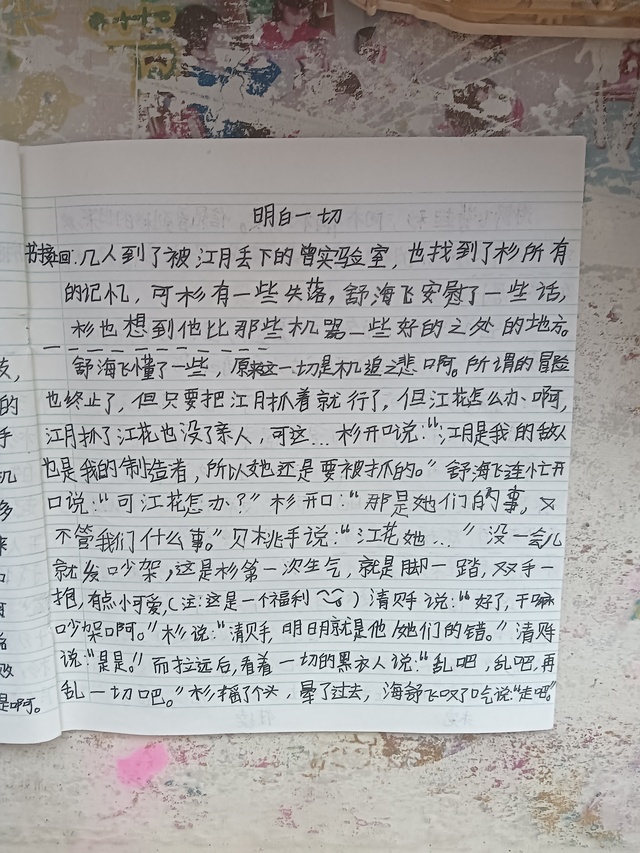 明白一切
书接上回：几人到了被江月丢下的曾实验室，也找到了杉所有
的记忆，可杉有一些失落，舒海飞安慰了一些话，
杉也想到他比那些机器一些好的之处的地方。
舒海飞懂了一些，原来这一切是机追之悲啊。所谓的冒险
也终止了，但只要把江月抓着就行了，但江花怎么办啊，
江月抓了江花也没了亲人，可这…杉开口说：“江月是我的敌人
也是我的制造者，所以她还是要被抓的。”舒海飞连忙开
口说：“可江花怎办？”杉开口：“那是她们的事，又
不管我们什么事。”贝桃手说：“江花她…”没一会儿
就发吵架，这是杉第一次生气，就是脚一踏，双手一
抱，有点小可爱，（注：这是一个福利）清贝手说：“好了，干嘛
吵架啊。”杉说：“清贝手，明明就是他/她们的错。”清贝手
说：“是是。”而拉远后，看着一切的黑衣人说：“乱吧，乱吧，再
乱一切吧。”杉摇了个头，晕了过去，海舒飞叹了口气说：“走吧。”
友，
的
手
几
多
来
口
可
败
是啊。